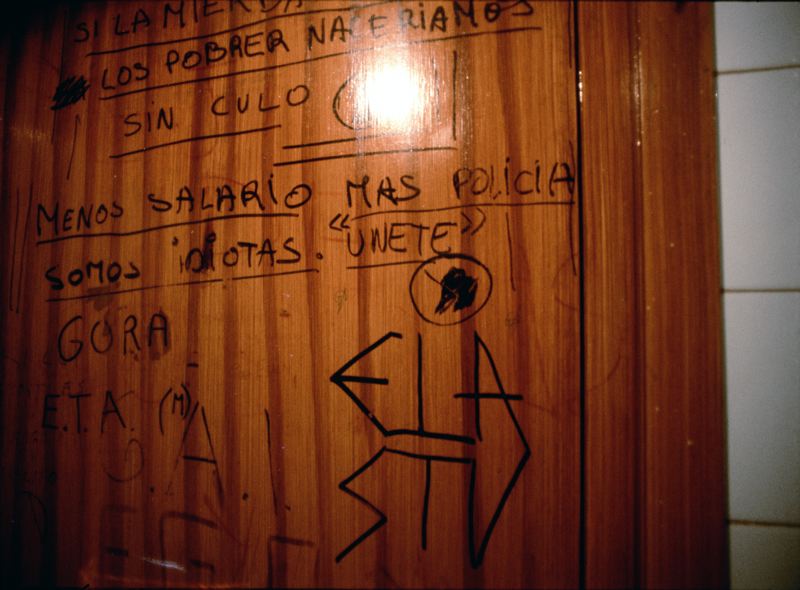 SI LA MIERDA
LOS POBRER NACERIAMOS
SIN CULO
MENOS SALARIO MAS POLICIA
SOMOS IDIOTAS. «UNETE»
GORA
E.T.A. (M)